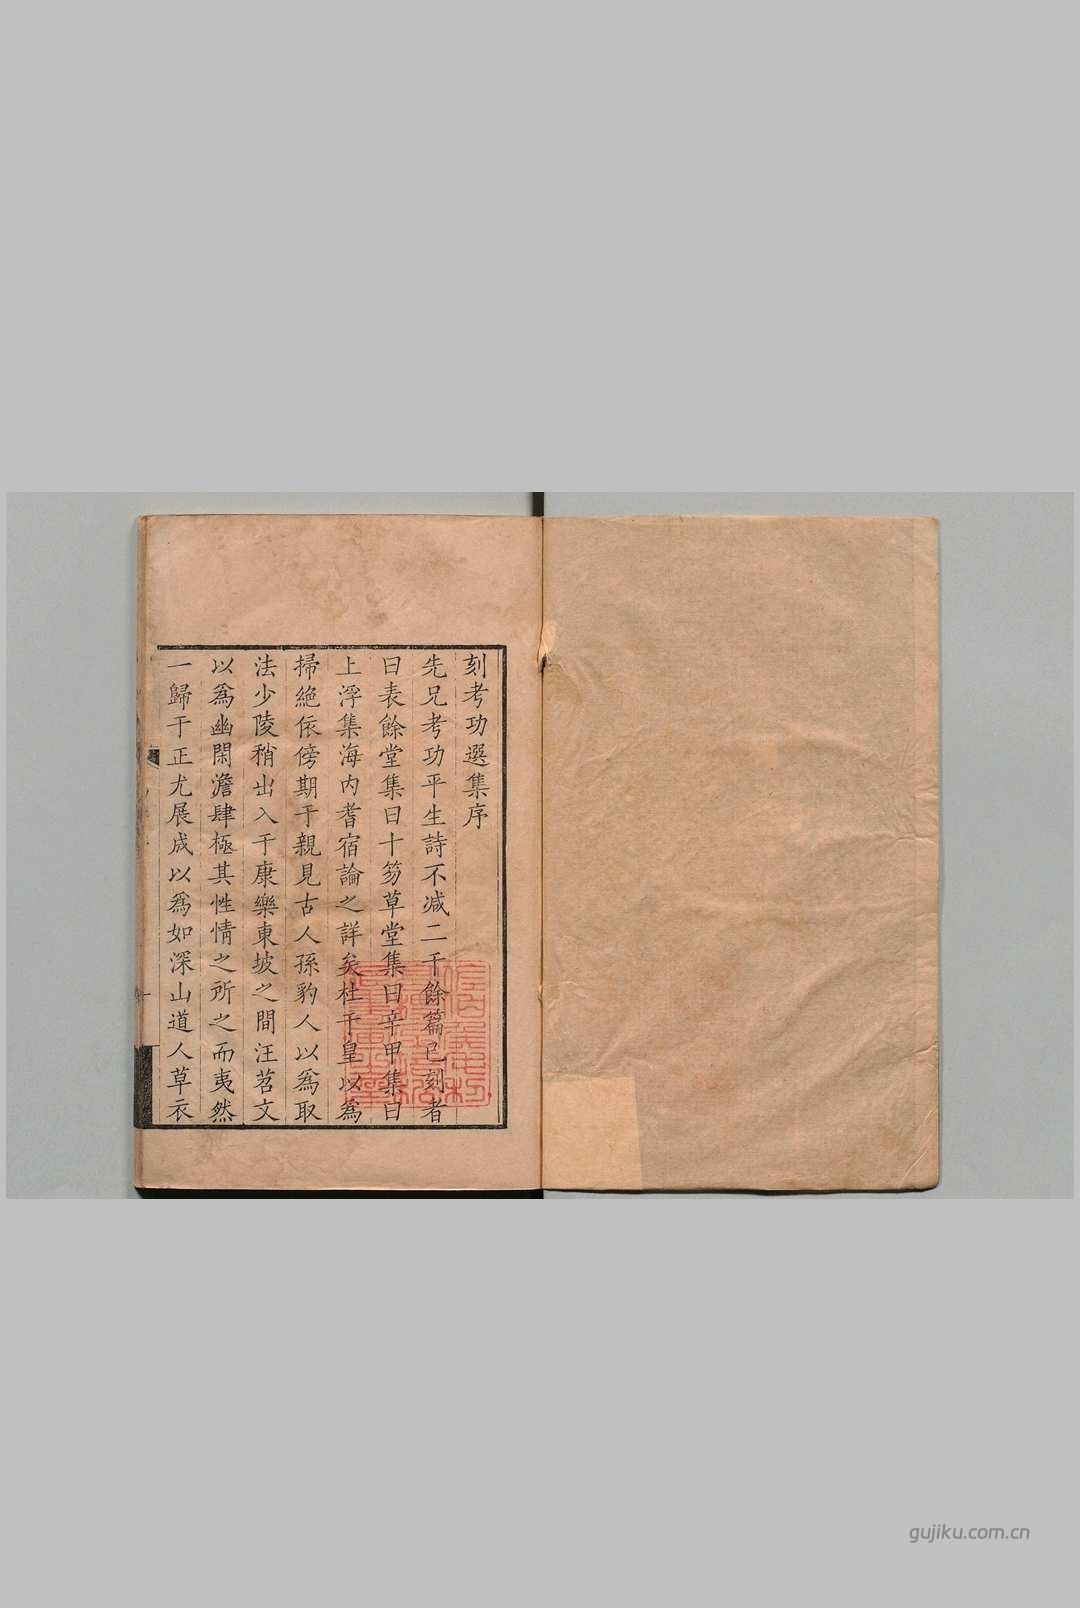 刻考功選集序
先兄考功平生詩不减二千餘篇已刻者
曰表餘堂集曰十笏草堂集曰辛甲集曰
上浮集海内耆宿論之詳矣杜于皇以爲
掃絶依傍期于親見古人孫豹人以爲取
法少陵稍出入于康樂東坡之間汪苕文
以爲幽閑澹肆極其性情之所之而夷然
一歸于正尤展成以爲如深山道人草衣
gujiku.com.cn